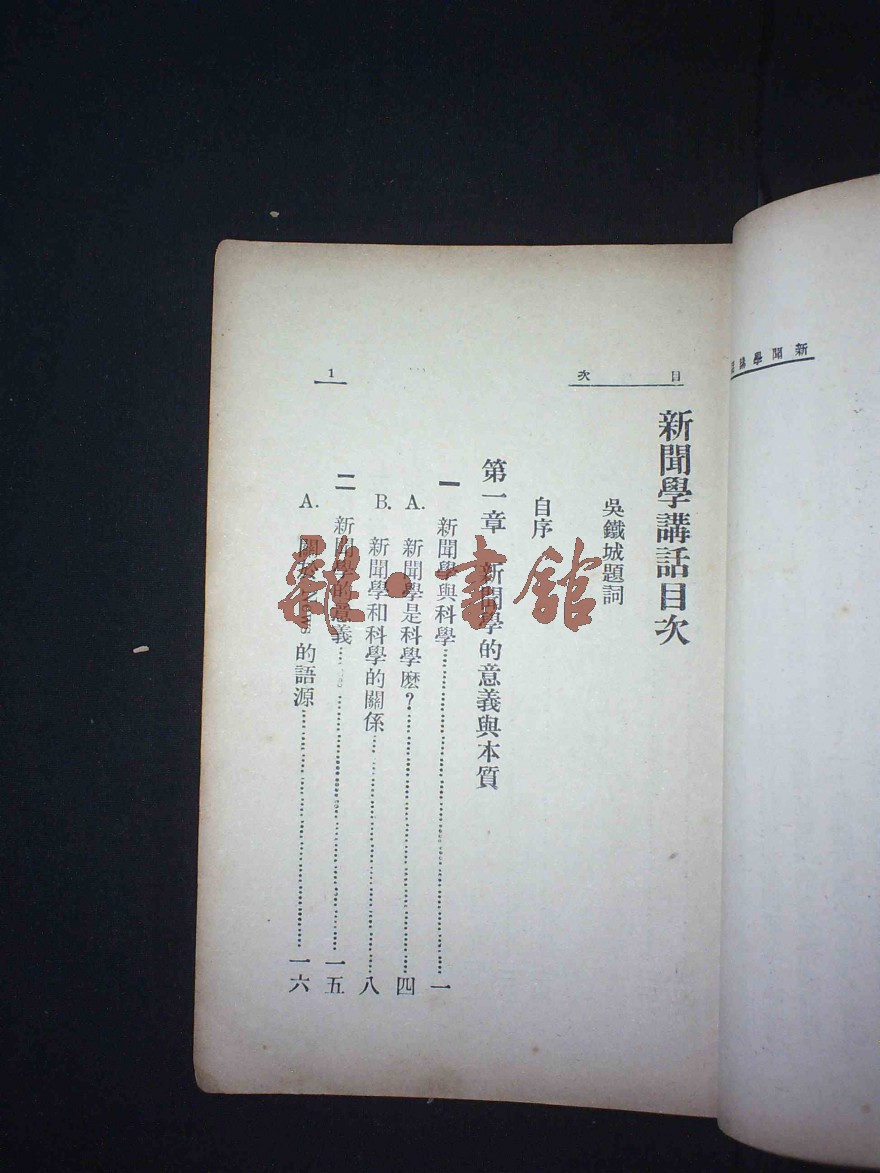 目次
1
新聞學講話目次
吳鐵城題詞
自序
第一章 新聞學的意義與本質
一 新聞學與科學……一
A. 新聞學是科學麽?……四
B. 新聞學和科學的關係……八
二 新聞學的意義……一五
A. 關於 News 的語源……一六
雜·書館
新聞學講